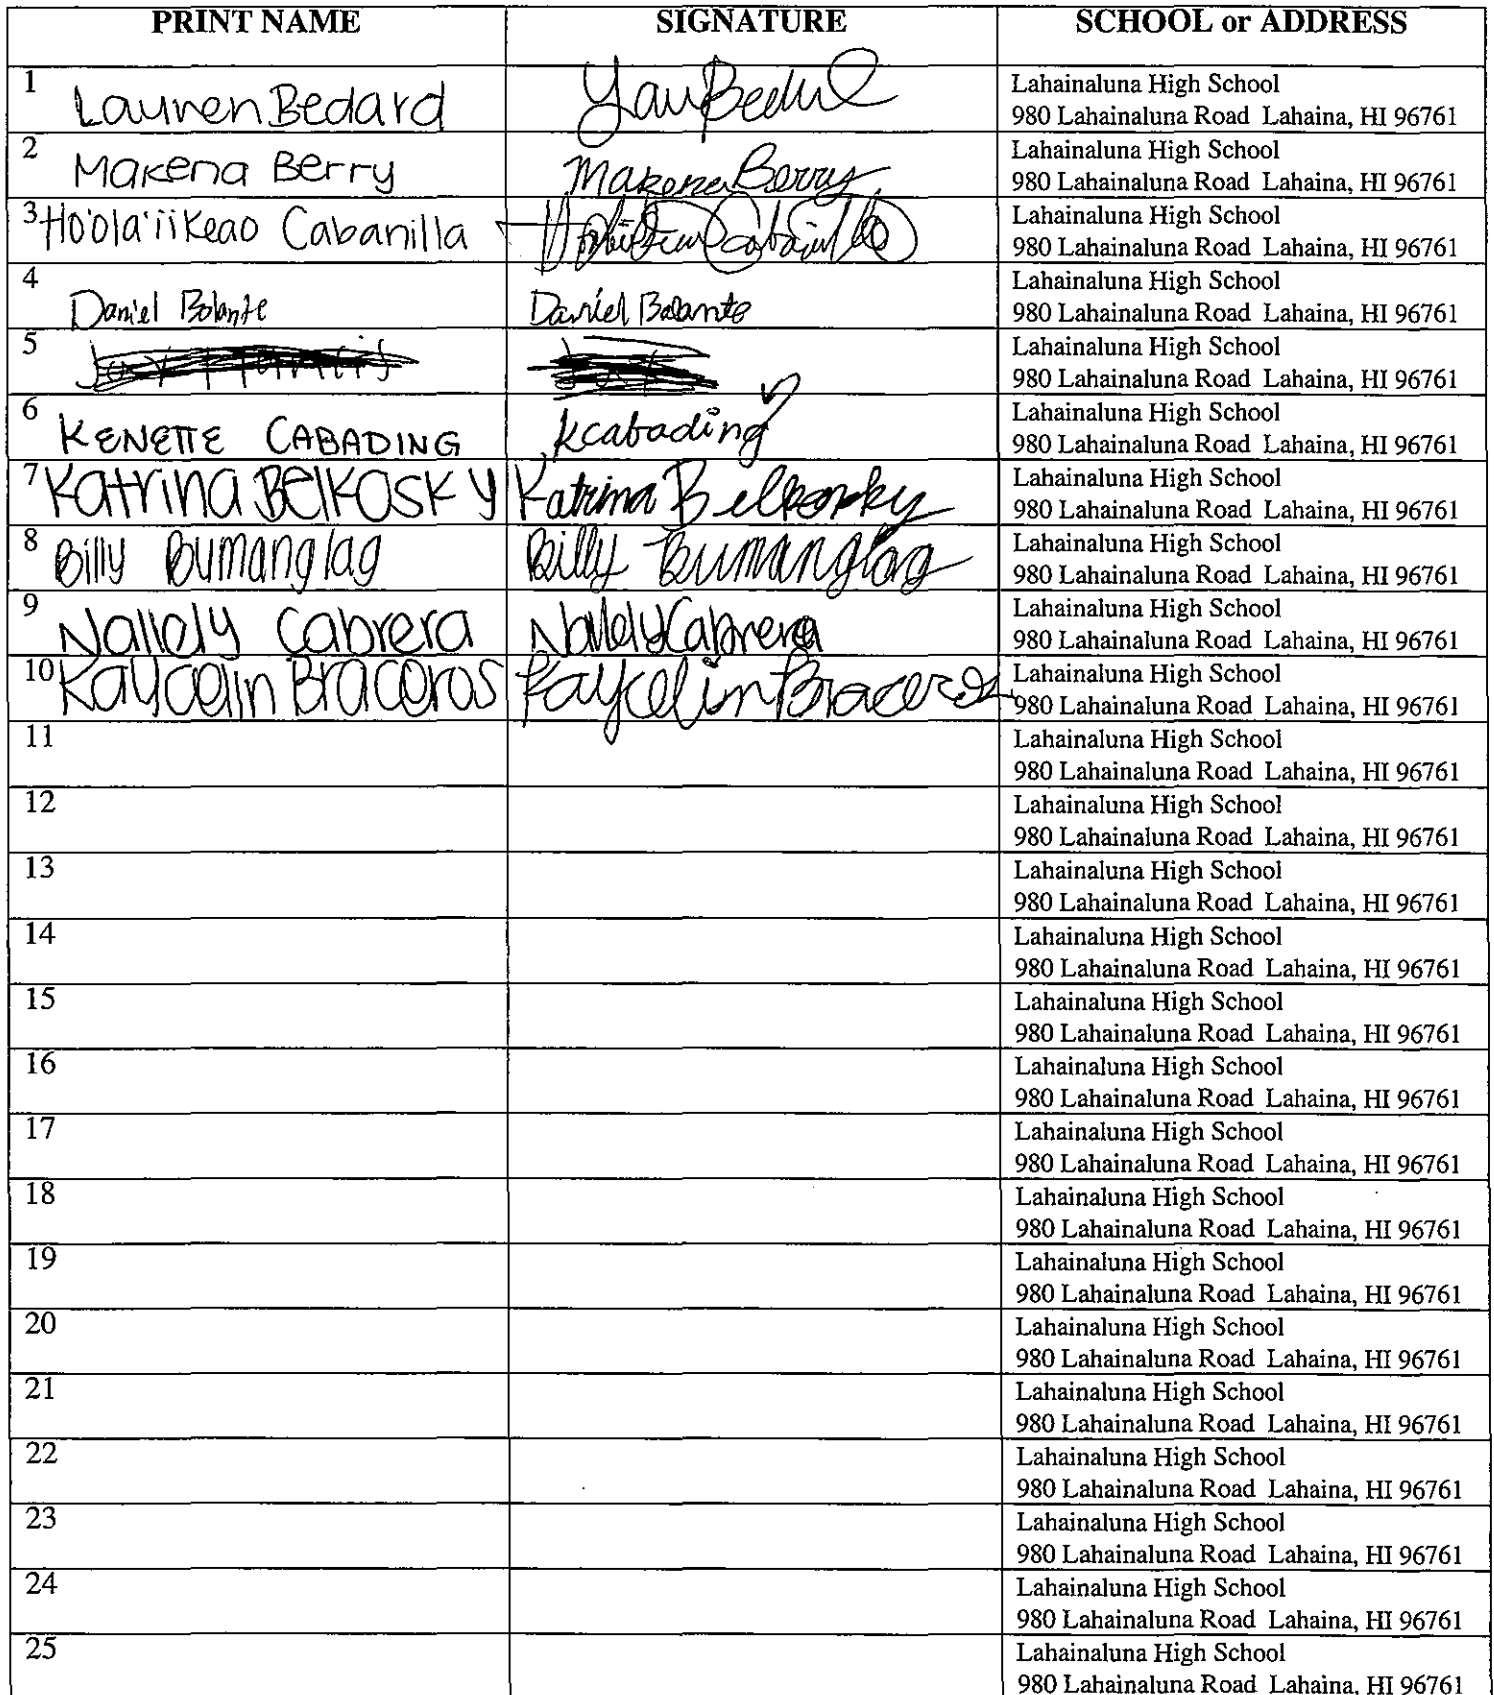 PRINT NAME SIGNATURE SCHOOL or ADDRESS
1 Lauren Bedard Lau Bedard Lahainaluna High School
980 Lahainaluna Road Lahaina, HI 96761
2 Makena Berry Makena Berry Lahainaluna High School
980 Lahainaluna Road Lahaina, HI 96761
3 Ho'ola'iikeao Cabanilla Lahainaluna High School
980 Lahainaluna Road Lahaina, HI 96761
4 Daniel Bolante Daniel Bolante Lahainaluna High School
980 Lahainaluna Road Lahaina, HI 96761
5 Lahainaluna High School
980 Lahainaluna Road Lahaina, HI 96761
6 KENETTE CABADING kcabading Lahainaluna High School
980 Lahainaluna Road Lahaina, HI 96761
7 Katrina Belkosky Katrina Belkosky Lahainaluna High School
980 Lahainaluna Road Lahaina, HI 96761
8 Billy Bumanglag Billy Bumanglag Lahainaluna High School
980 Lahainaluna Road Lahaina, HI 96761
9 Nallely Cabrera Nallely Cabrera Lahainaluna High School
980 Lahainaluna Road Lahaina, HI 96761
10 Kaycelin Braceros Kaycelin Braceros Lahainaluna High School
980 Lahainaluna Road Lahaina, HI 96761
11 Lahainaluna High School
980 Lahainaluna Road Lahaina, HI 96761
12 Lahainaluna High School
980 Lahainaluna Road Lahaina, HI 96761
13 Lahainaluna High School
980 Lahainaluna Road Lahaina, HI 96761
14 Lahainaluna High School
980 Lahainaluna Road Lahaina, HI 96761
15 Lahainaluna High School
980 Lahainaluna Road Lahaina, HI 96761
16 Lahainaluna High School
980 Lahainaluna Road Lahaina, HI 96761
17 Lahainaluna High School
980 Lahainaluna Road Lahaina, HI 96761
18 Lahainaluna High School
980 Lahainaluna Road Lahaina, HI 96761
19 Lahainaluna High School
980 Lahainaluna Road Lahaina, HI 96761
20 Lahainaluna High School
980 Lahainaluna Road Lahaina, HI 96761
21 Lahainaluna High School
980 Lahainaluna Road Lahaina, HI 96761
22 Lahainaluna High School
980 Lahainaluna Road Lahaina, HI 96761
23 Lahainaluna High School
980 Lahainaluna Road Lahaina, HI 96761
24 Lahainaluna High School
980 Lahainaluna Road Lahaina, HI 96761
25 Lahainaluna High School
980 Lahainaluna Road Lahaina, HI 96761